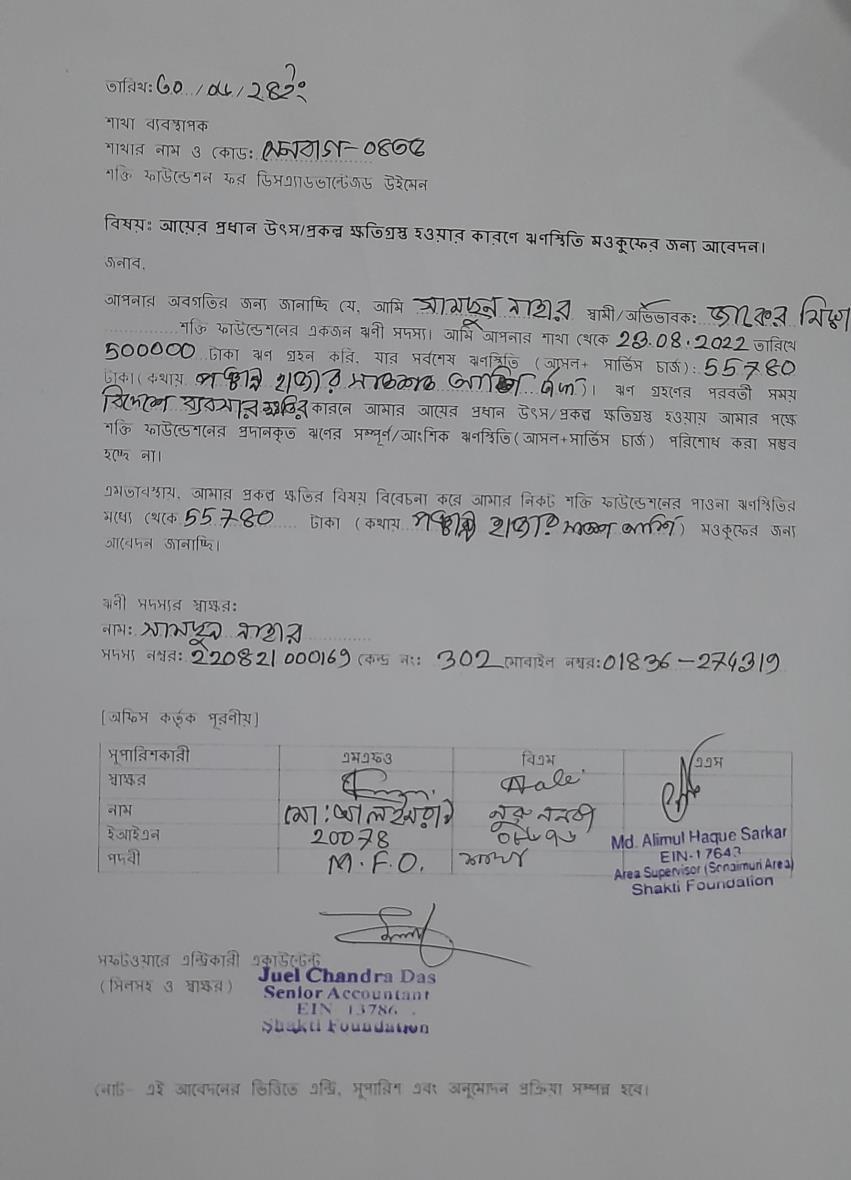 তারিখ:
শাখা ব্যবস্থাপক
শাখার নাম ও কোড:
শক্তি ফাউন্ডেশন ফর ডিসএ্যাডভান্টেজড উইমেন
বিষয়: আয়ের প্রধান উৎস/প্রকল্প ক্ষতিগ্রস্ত হওয়ার কারণে ঋণস্থিতি মওকুফের জন্য আবেদন।
জনাব,
আপনার অবগতির জন্য জানাচ্ছি যে, আমি সামছুন নাহার স্বামী/অভিভাবক:
শক্তি ফাউন্ডেশনের একজন ঋনী সদস্য। আমি আপনার শাখা থেকে 23.08.2022 তারিখে
500000 টাকা ঋণ গ্রহন করি, যার সর্বশেষ ঋণস্থিতি (আসল+ সার্ভিস চার্জ): 55780
টাকা (কথায় পঞ্চান্ন হাজার সাতশত আশি টাকা)। ঋণ গ্রহণের পরবর্তী সময়
বিদেশে ব্যবসার ক্ষতির কারনে আমার আয়ের প্রধান উৎস/প্রকল্প ক্ষতিগ্রস্ত হওয়ায় আমার পক্ষে
শক্তি ফাউন্ডেশনের প্রদানকৃত ঋণের সম্পূর্ণ/আংশিক ঋণস্থিতি(আসল+সার্ভিস চার্জ) পরিশোধ করা সম্ভব
হচ্ছে না।
এমতাবস্থায়, আমার প্রকল্প ক্ষতির বিষয় বিবেচনা করে আমার নিকট শক্তি ফাউন্ডেশনের পাওনা ঋণস্থিতির
মধ্যে থেকে 55780 টাকা (কথায় পঞ্চান্ন হাজার সাতশ আশি) মওকুফের জন্য
আবেদন জানাচ্ছি।
ঋনী সদস্যর স্বাক্ষর:
নাম: সামছুন নাহার
সদস্য নম্বর: 220821000169 কেন্দ্র নং: 302 মোবাইল নম্বর: 01836-274319
[অফিস কর্তৃক পূরণীয়]
সুপারিশকারী এমএফও বিএম এএস
স্বাক্ষর
নাম মো: আল ইমরান নুরুননবী
ইআইএন 20078
পদবী M.F.O.
Md. Alimul Haque Sarkar
EIN-17643
Area Supervisor (Sonaimuri Area)
Shakti Foundation
সফটওয়ারে এন্ট্রিকারী একাউন্টেন্ট
(সিলসহ ও স্বাক্ষর)
Juel Chandra Das
Senior Accountant
EIN 13786
Shakti Foundation
নোট- এই আবেদনের ভিত্তিতে এন্ট্রি, সুপারিশ এবং অনুমোদন প্রক্রিয়া সম্পন্ন হবে।